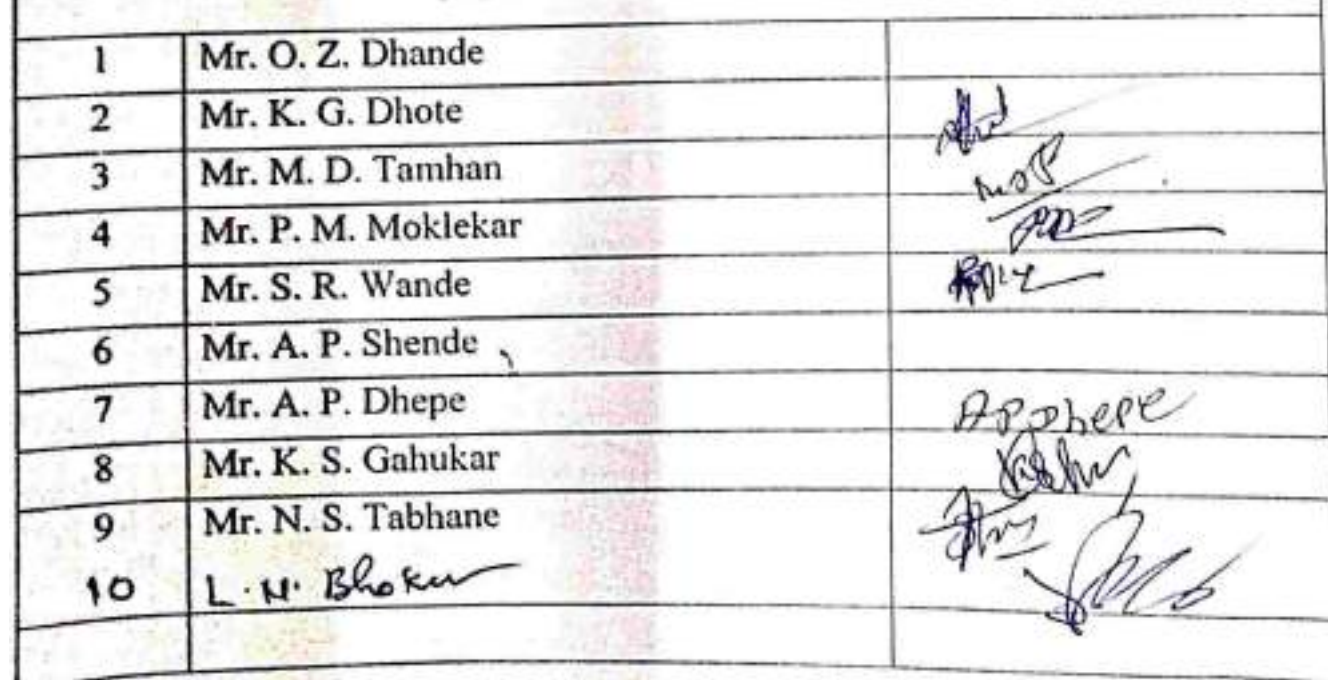 1 Mr. O. Z. Dhande
2 Mr. K. G. Dhote
3 Mr. M. D. Tamhan
4 Mr. P. M. Moklekar
5 Mr. S. R. Wande
6 Mr. A. P. Shende
7 Mr. A. P. Dhepe A P Dhepe
8 Mr. K. S. Gahukar
9 Mr. N. S. Tabhane
10 L. N.